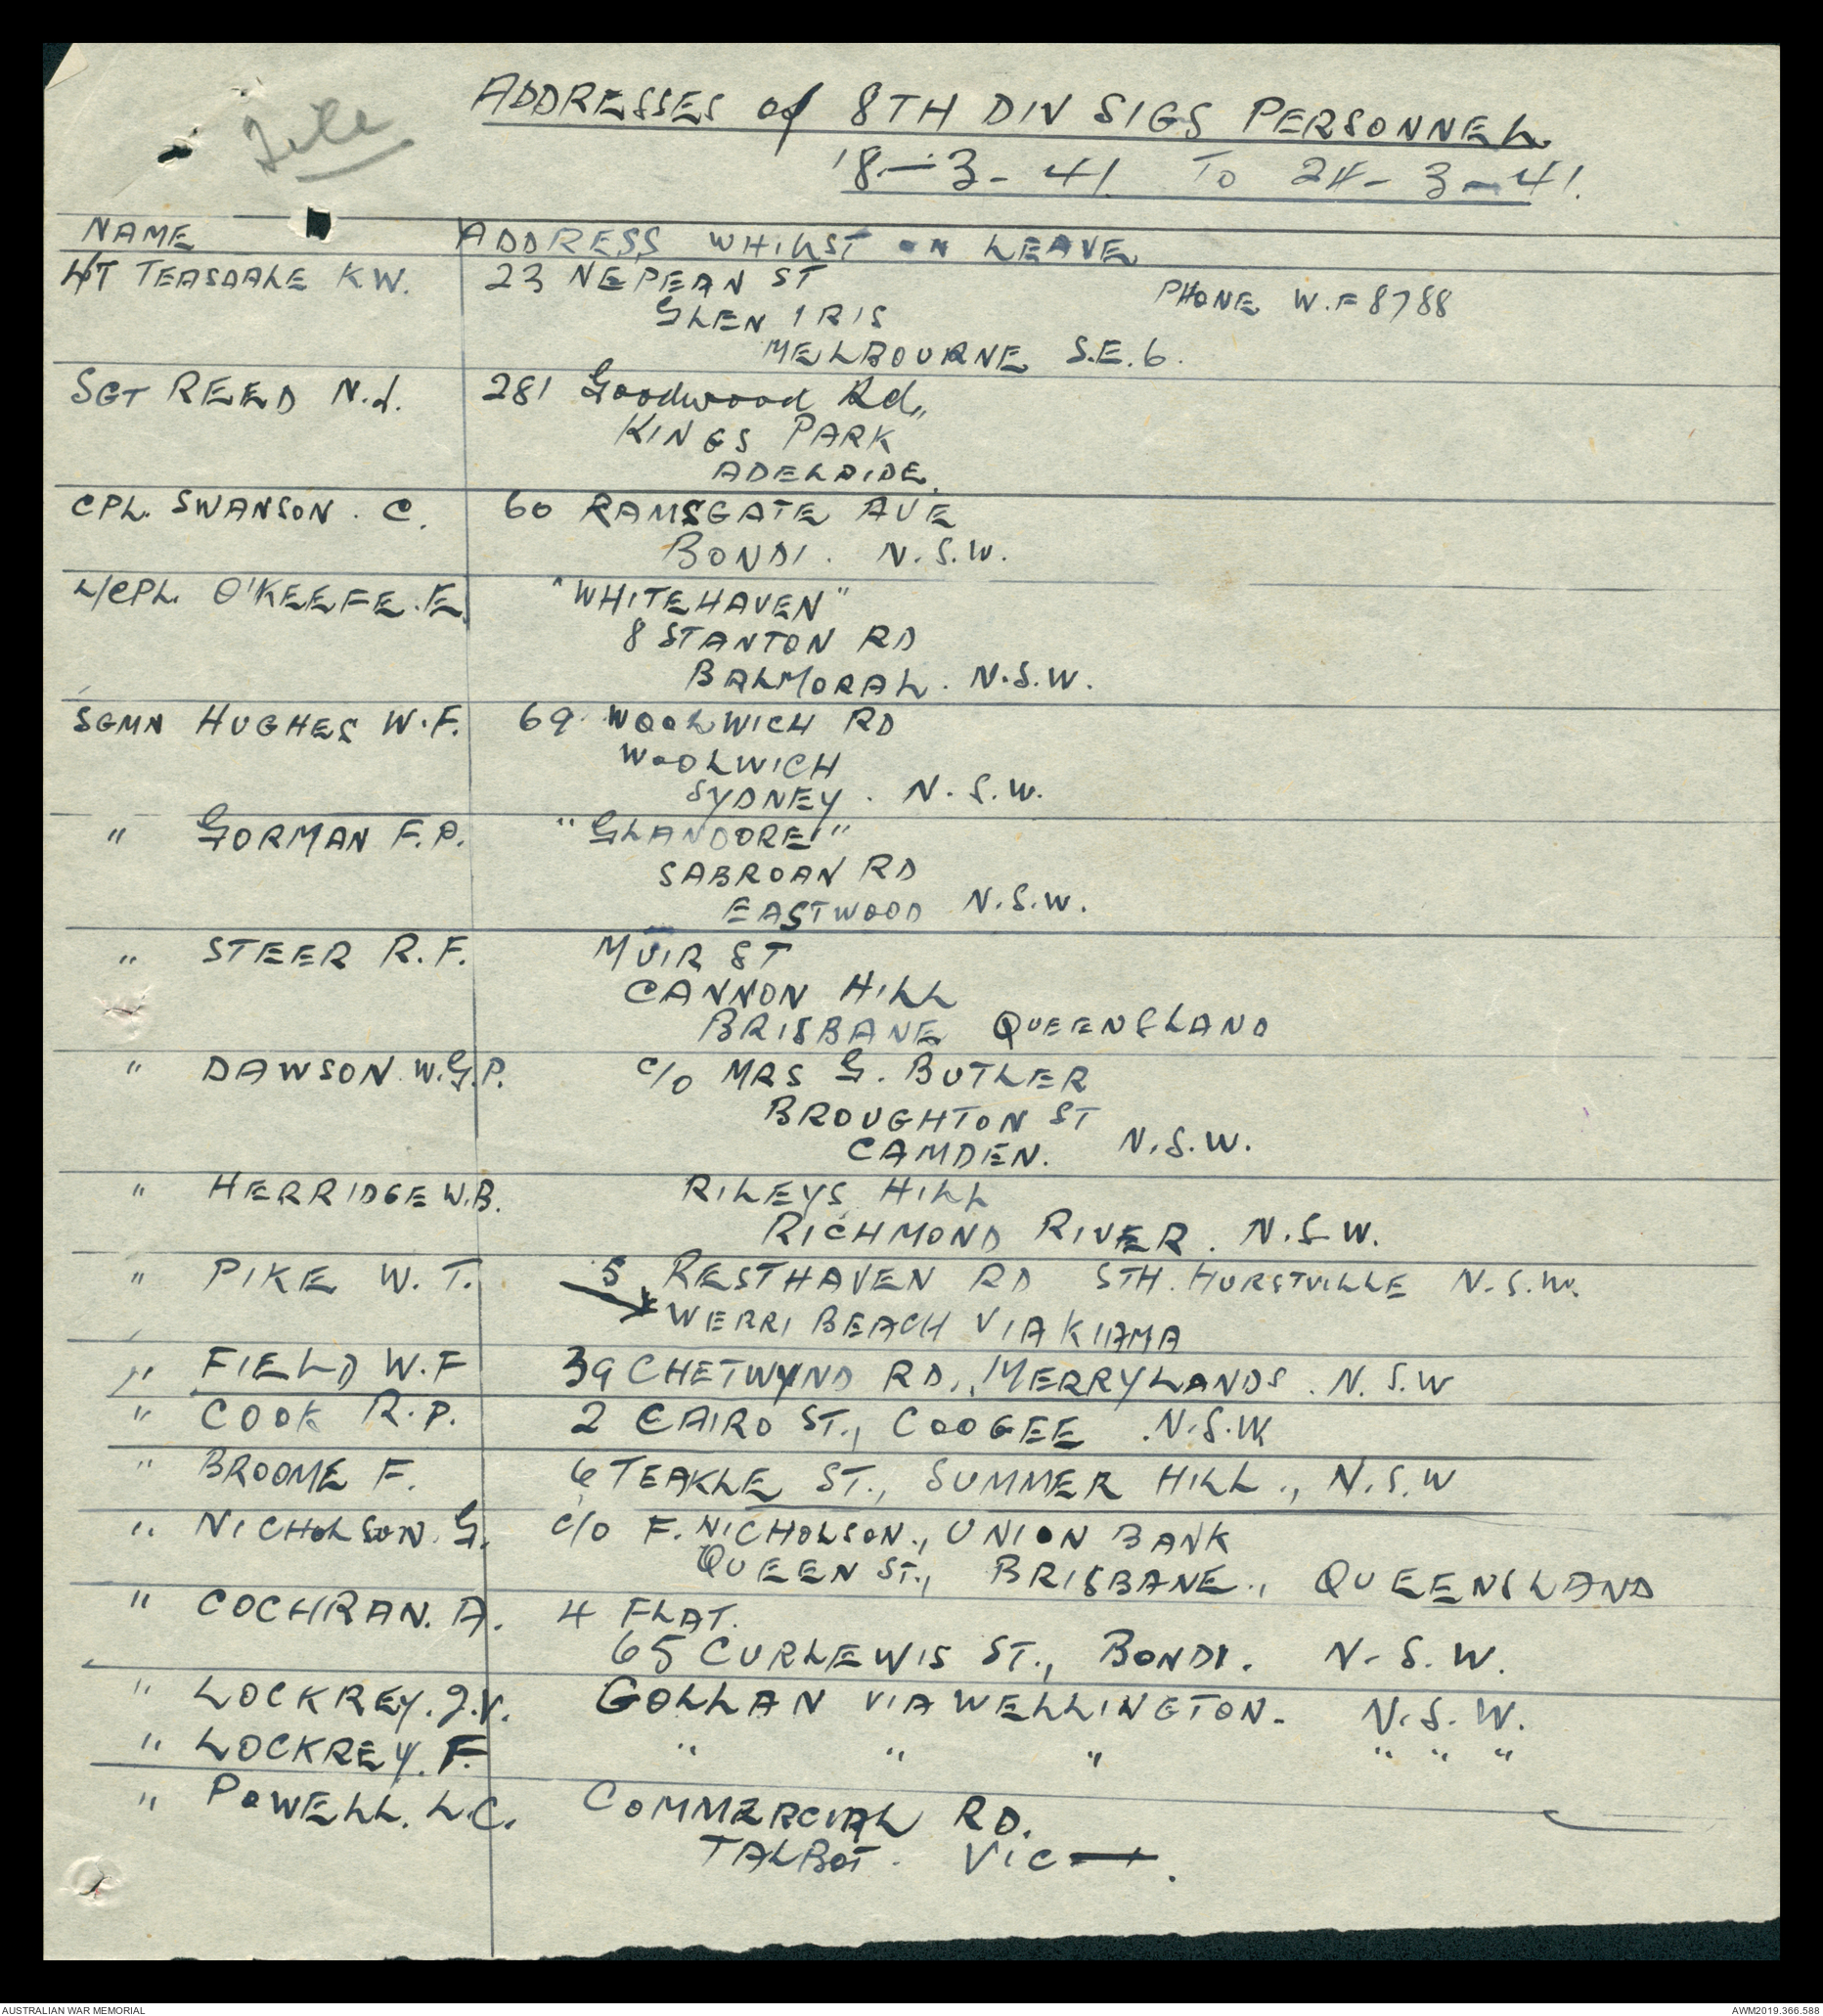 File
ADDRESSES of 8TH DIV SIGS PERSONNEL
18-3-41 TO 24-3-41.
NAME ADDRESS WHILST ON LEAVE
L/T TEASDALE K W. 23 NEPEAN ST
PHONE W.F 8788
GLEN IRIS
MELBOURNE S.E.6.
SGT REED N.J. 281 Goodwood Rd,,
KINGS PARK
ADELAIDE.
CPL. SWANSON. C. 60 RAMSGATE AVE
BONDI. N.S.W.
L/CPL. O'KEEFE.E. "WHITEHAVEN"
8 STANTON RD
BALMORAL. N.S.W.
SGMN HUGHES W.F. 69. WOOLWICH RD
WOOLWICH
SYDNEY. N.S.W.
" GORMAN F.P. "GLANDORE"
SABROAN RD
EASTWOOD N.S.W.
" STEER R.F. MUIR ST
CANNON HILL
BRISBANE QUEENSLAND
" DAWSON. W.G.P. C/O MRS G. BUTLER
BROUGHTON ST
CAMDEN. N.S.W.
" HERRIDGE W.B. RILEYS HILL
RICHMOND RIVER. N.S.W.
" PIKE W.T. 5 RESTHAVEN RD STH. HURSTVILLE N.S.W.
WERRI BEACH VIA KIAMA
" FIELD W.F 39 CHETWYND RD., MERRYLANDS. N.S.W
" COOK R.P. 2 CAIRO ST., COOGEE .N.S.W
" BROOME F. 6 TEAKLE ST., SUMMER HILL., N.S.W
" NICHOLSON. G. C/O F. NICHOLSON., UNION BANK
QUEEN ST., BRISBANE., QUEENSLAND
" COCHRAN. A. 4 FLAT.
65 CURLEWIS ST., BONDI. N.S.W.
" LOCKREY. J.V. GOLLAN VIA WELLINGTON. N.S.W.
" LOCKREY. F. " " " " " "
" POWELL. L.C. COMMERCIAL RD.
TALBOT. VIC.
AUSTRALIAN WAR MEMORIAL AWM2019.366.588